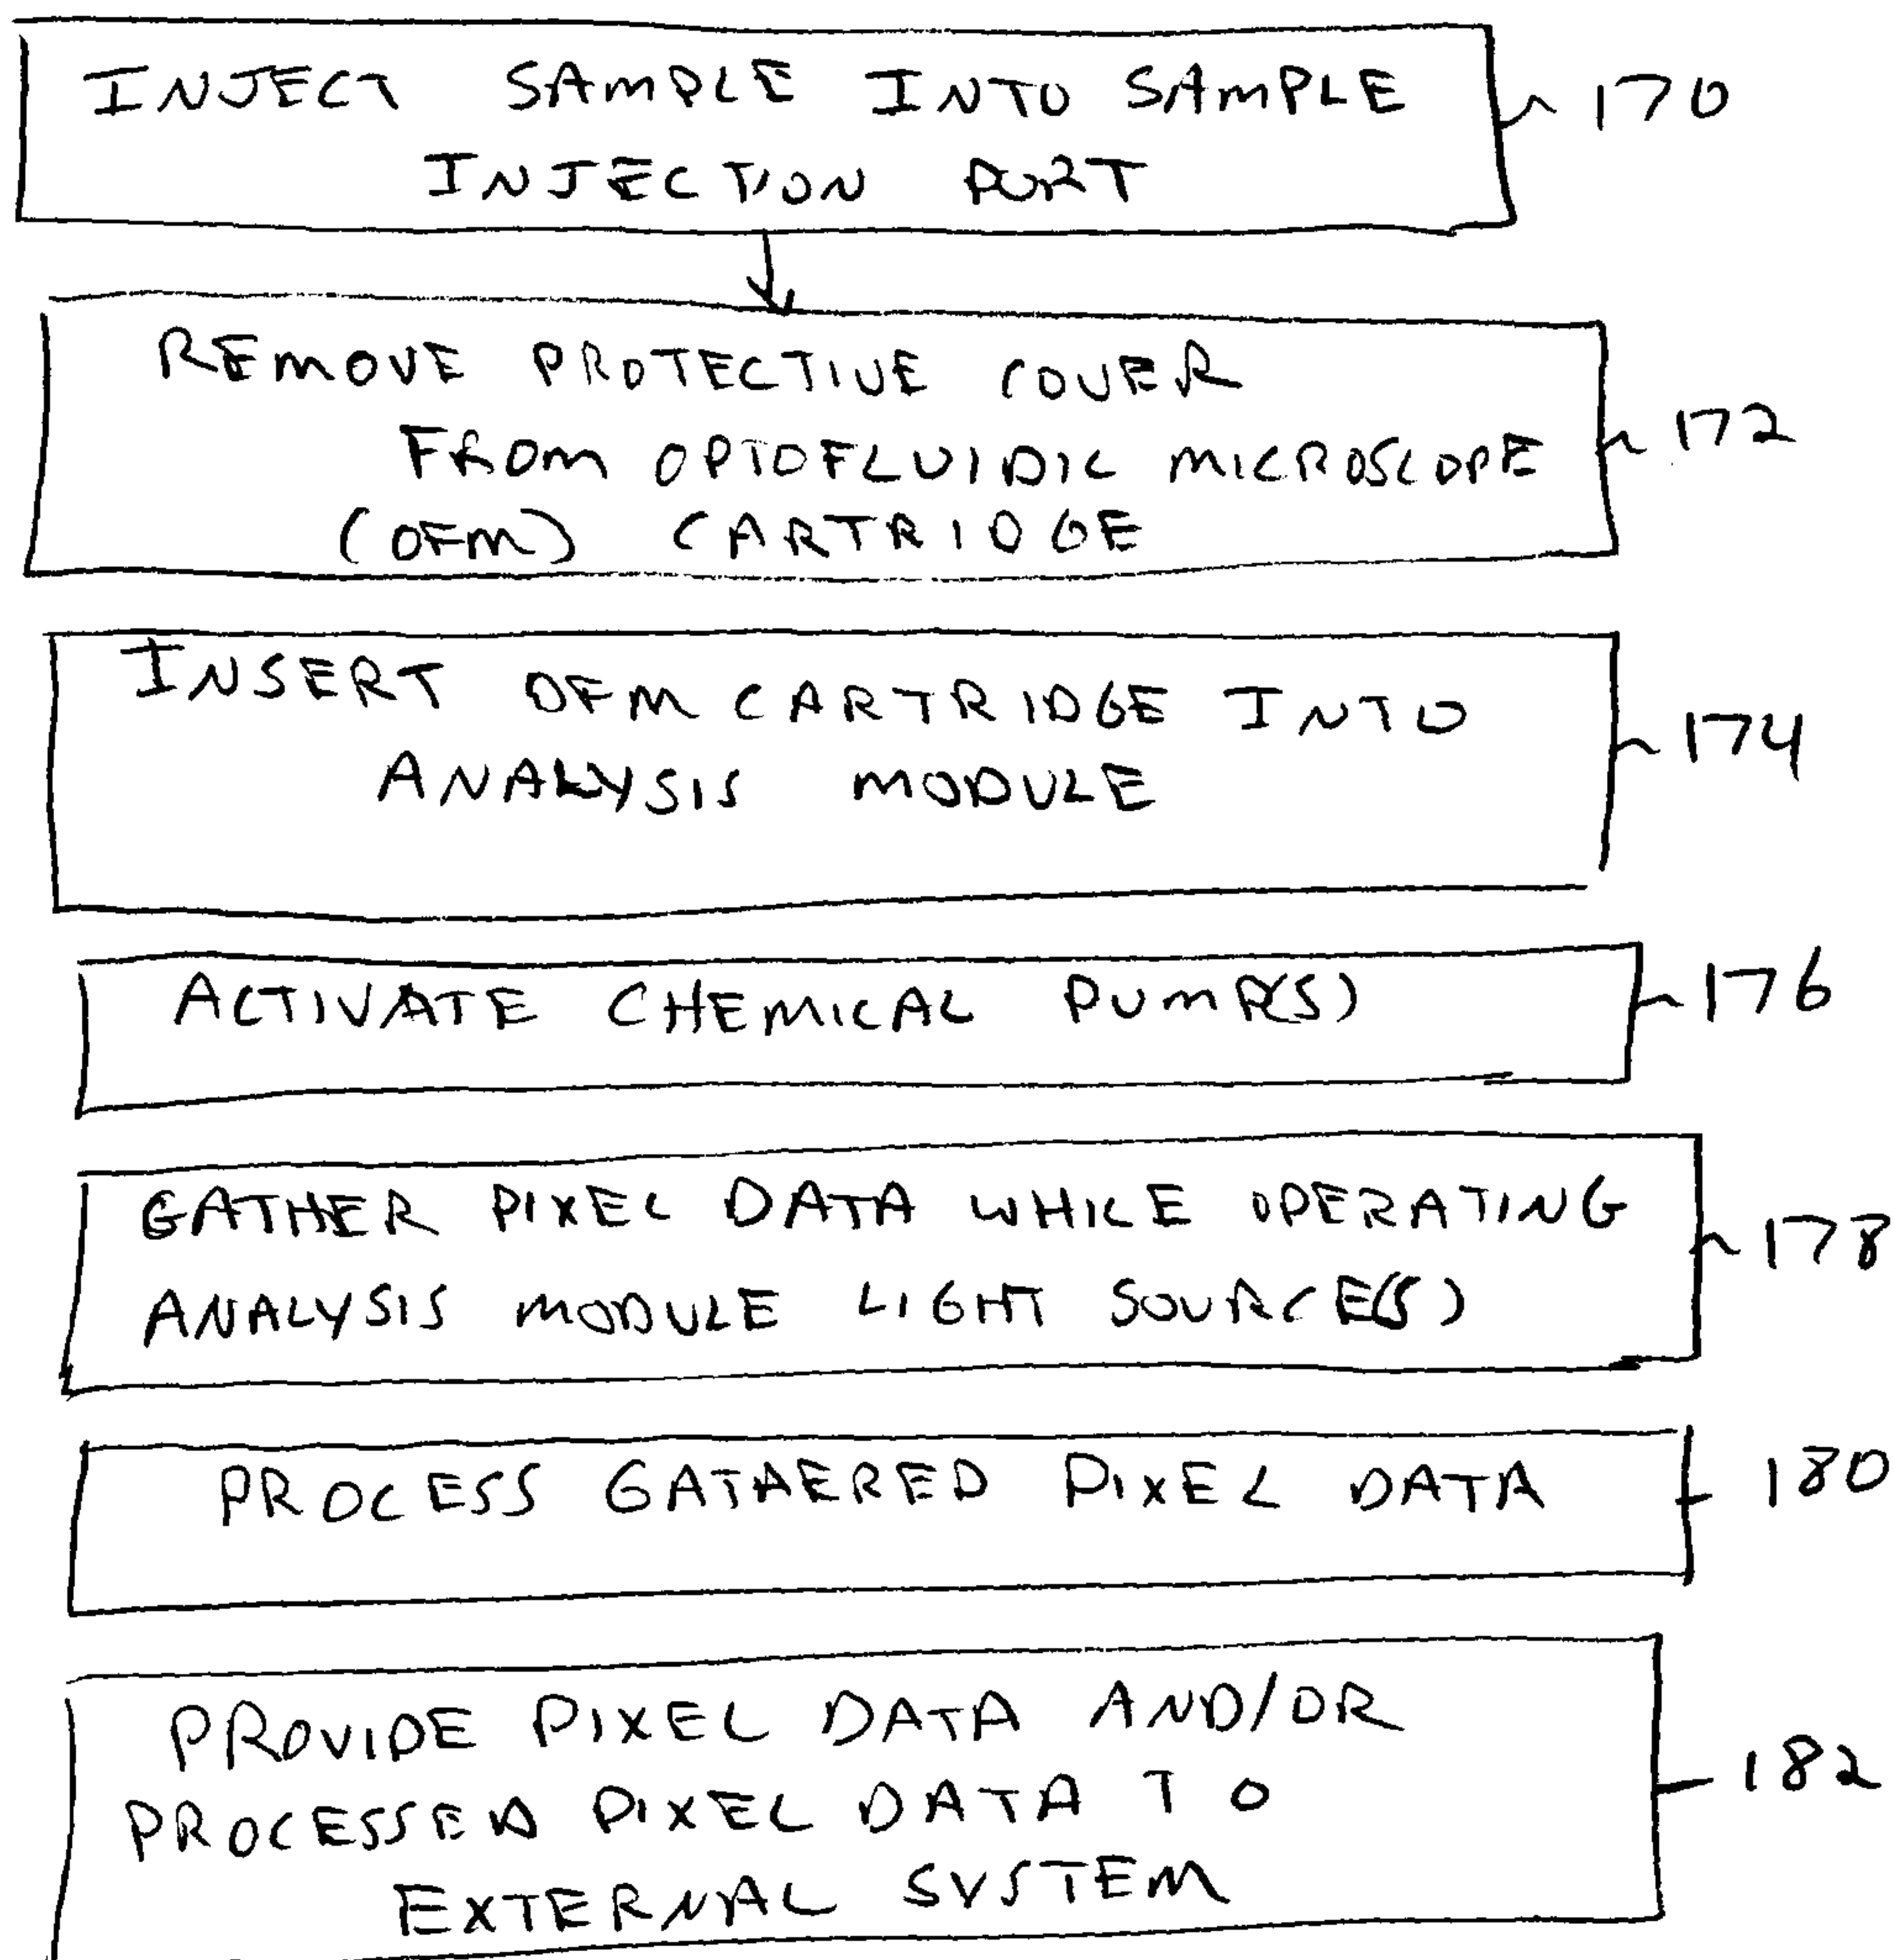 INJECT SAMPLE INTO SAMPLE
INJECTION PORT
170
REMOVE PROTECTIVE COVER
FROM OPTOFLUIDIC MICROSCOPE
(OFM) CARTRIDGE
172
INSERT OFM CARTRIDGE INTO
ANALYSIS MODULE
174
ACTIVATE CHEMICAL PUMP(S)
176
GATHER PIXEL DATA WHILE OPERATING
ANALYSIS MODULE LIGHT SOURCE(S)
178
PROCESS GATHERED PIXEL DATA
180
PROVIDE PIXEL DATA AND/OR
PROCESSED PIXEL DATA TO
EXTERNAL SYSTEM
182